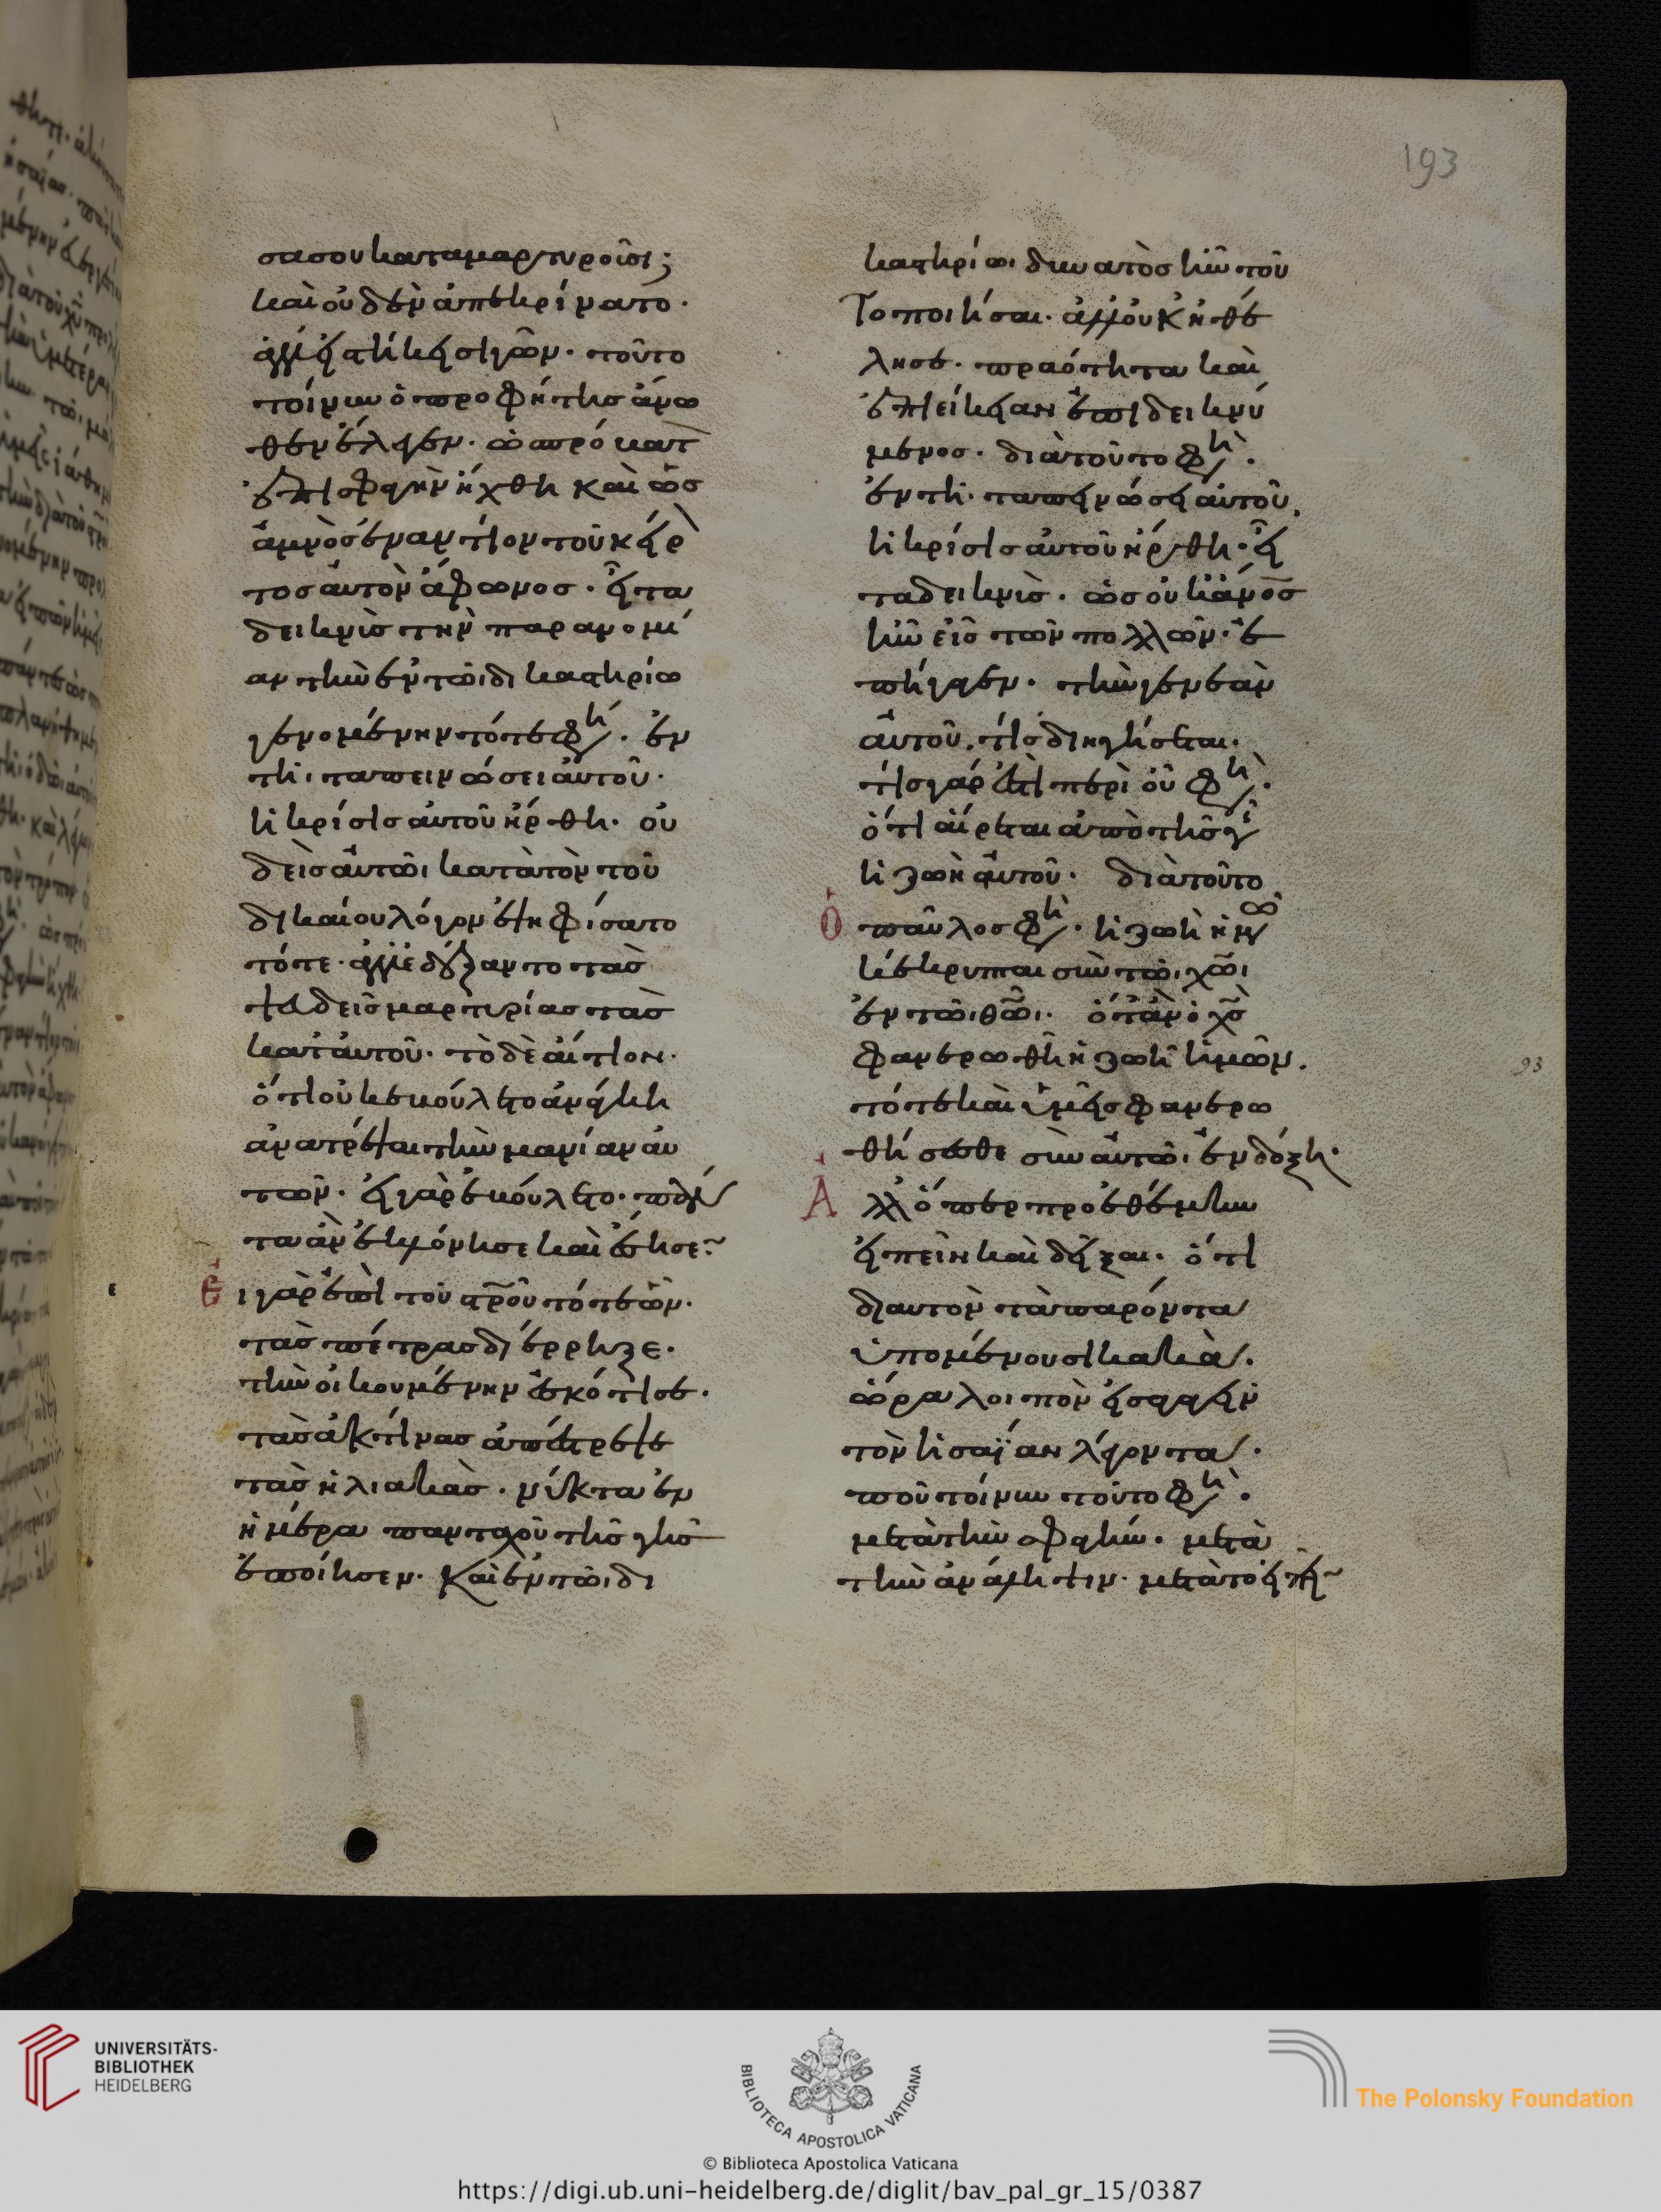 193
σα σου καταμαρτυροῦσι;
καὶ οὐδὲν ἀπεκρίνατο·
ἀλλ' εἱστήκει σιγῶν· τοῦτο
τοίνυν ὁ προφήτης ἄνω
θεν ἔλεγεν· ὡς πρόβατ
ἐπὶ σφαγὴν ἤχθη καὶ ὡς
ἀμνὸς ἐναντίον τοῦ κείρ
τος αὐτὸν ἄφωνος· εἶτα
δεικνὺς τὴν παρανομί
αν τὴν ἐν τῶι δικαστηρίω
γενομένην τότε φη· ἐν
τῆι ταπεινώσει αὐτοῦ·
ἡ κρίσις αὐτοῦ ἤρθη· οὐ
δεὶς αὐτῶι κατὰ τὸν τοῦ
δικαίου λόγον ἐψηφίσατο
τότε· ἀλλ' ἐδέξαντο τὰς
ψευδεῖς μαρτυρίας τὰς
κατ' αὐτοῦ· τὸ δὲ αἴτιον·
ὅτι οὐκ ἐβούλετο ἀνάγκη
ἀνατρέψαι τὴν μανίαν αὐ
τῶν· εἰ γὰρ ἐβούλετο·
τα ἂν ἐκλόνησε καὶ ἔσεισε·
Εἰ γὰρ ἐπὶ τοῦ σροῦ τότε ὢν·
τὰς πέτρας διέρρηξε·
τὴν οἰκουμένην ἐσκότισε·
τὰς ἀκτῖνας ἀπέστρεψε
τὰς ἡλιακὰς· νύκτα ἐν
ἡμέρα πανταχοῦ τῆς γῆς
ἐποίησεν· καὶ ἐν τῶι δι
καστηρίωι δυνατὸς ἦν τοῦ
το ποιῆσαι· ἀλλ' οὐκ ἠθέ
λησε· πραότητα καὶ
ἐπιείκειαν ἐπιδεικνύ
μενος· διὰ τοῦτο φη·
ἐν τῆι ταπεινώσει αὐτοῦ,
ἡ κρίσις αὐτοῦ ἤρθη· εἶ
τα δεικνὺς· ὡς οὐκ ἄνος
ἦν εἷς τῶν πολλῶν· ἐ
πήγαγεν· τὴν γενεὰν
αὐτοῦ, τίς διηγήσεται·
τίς γάρ ἐστι περὶ οὗ φη·
ὅτι αἴρεται ἀπὸ τῆς γῆ
ἡ ζωὴ αὐτοῦ· διὰ τοῦτο
ὁ παῦλος φη· ἡ ζωὴ ἡμων
κέκρυπται σὺν τῶι χῶι
ἐν τῶι θῶι· ὅταν ὁ χς
φανερωθῆ ἡ ζωὴ ἡμῶν,
τότε καὶ ὑμεῖς φανερω
93
θήσεσθε σὺν αὐτῶι ἐν δόξη·
Ἀλλ' ὅπερ προεθέμην
εἰπεῖν καὶ δεῖξαι· ὅτι
δι αυτὸν τὰ παρόντα
ὑπομένουσι κακὰ·
ὥρα λοιπὸν εἰσαγαγεῖν
τὸν ἡσαΐαν λέγοντα·
ποῦ τοίνυν τοῦτο φη·
μετὰ τὴν σφαγήν· μετὰ
τὴν ἀνάληψιν· μετὰ τὸ εἰπεῖ
UNIVERSITÄTS-
BIBLIOTHEK
HEIDELBERG
BIBLIOTECA APOSTOLICA VATICANA
The Polonsky Foundation
© Biblioteca Apostolica Vaticana
https://digi.ub.uni-heidelberg.de/diglit/bav_pal_gr_15/0387